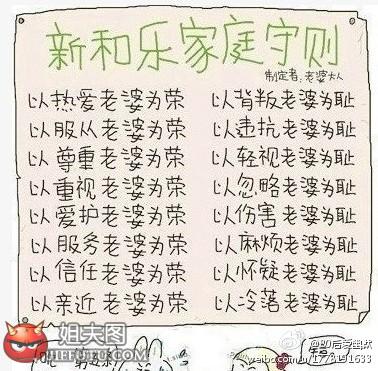 新和乐家庭守则
制定者:老婆大人
以热爱老婆为荣 以背叛老婆为耻
以服从老婆为荣 以违抗老婆为耻
以尊重老婆为荣 以轻视老婆为耻
以重视老婆为荣 以忽略老婆为耻
以爱护老婆为荣 以伤害老婆为耻
以服务老婆为荣 以麻烦老婆为耻
以信任老婆为荣 以怀疑老婆为耻
以亲近老婆为荣 以冷落老婆为耻
姐夫图
JIEFUTU.COM
@80后爱幽默
weibo.com/1773191633